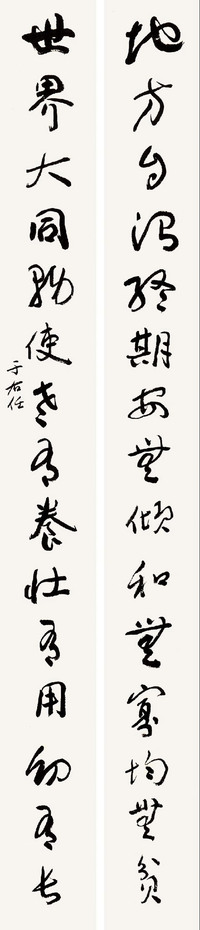 地方自治終期安無傾和無寡均無貧
世界大同使老有養壯有用幼有長
于右任